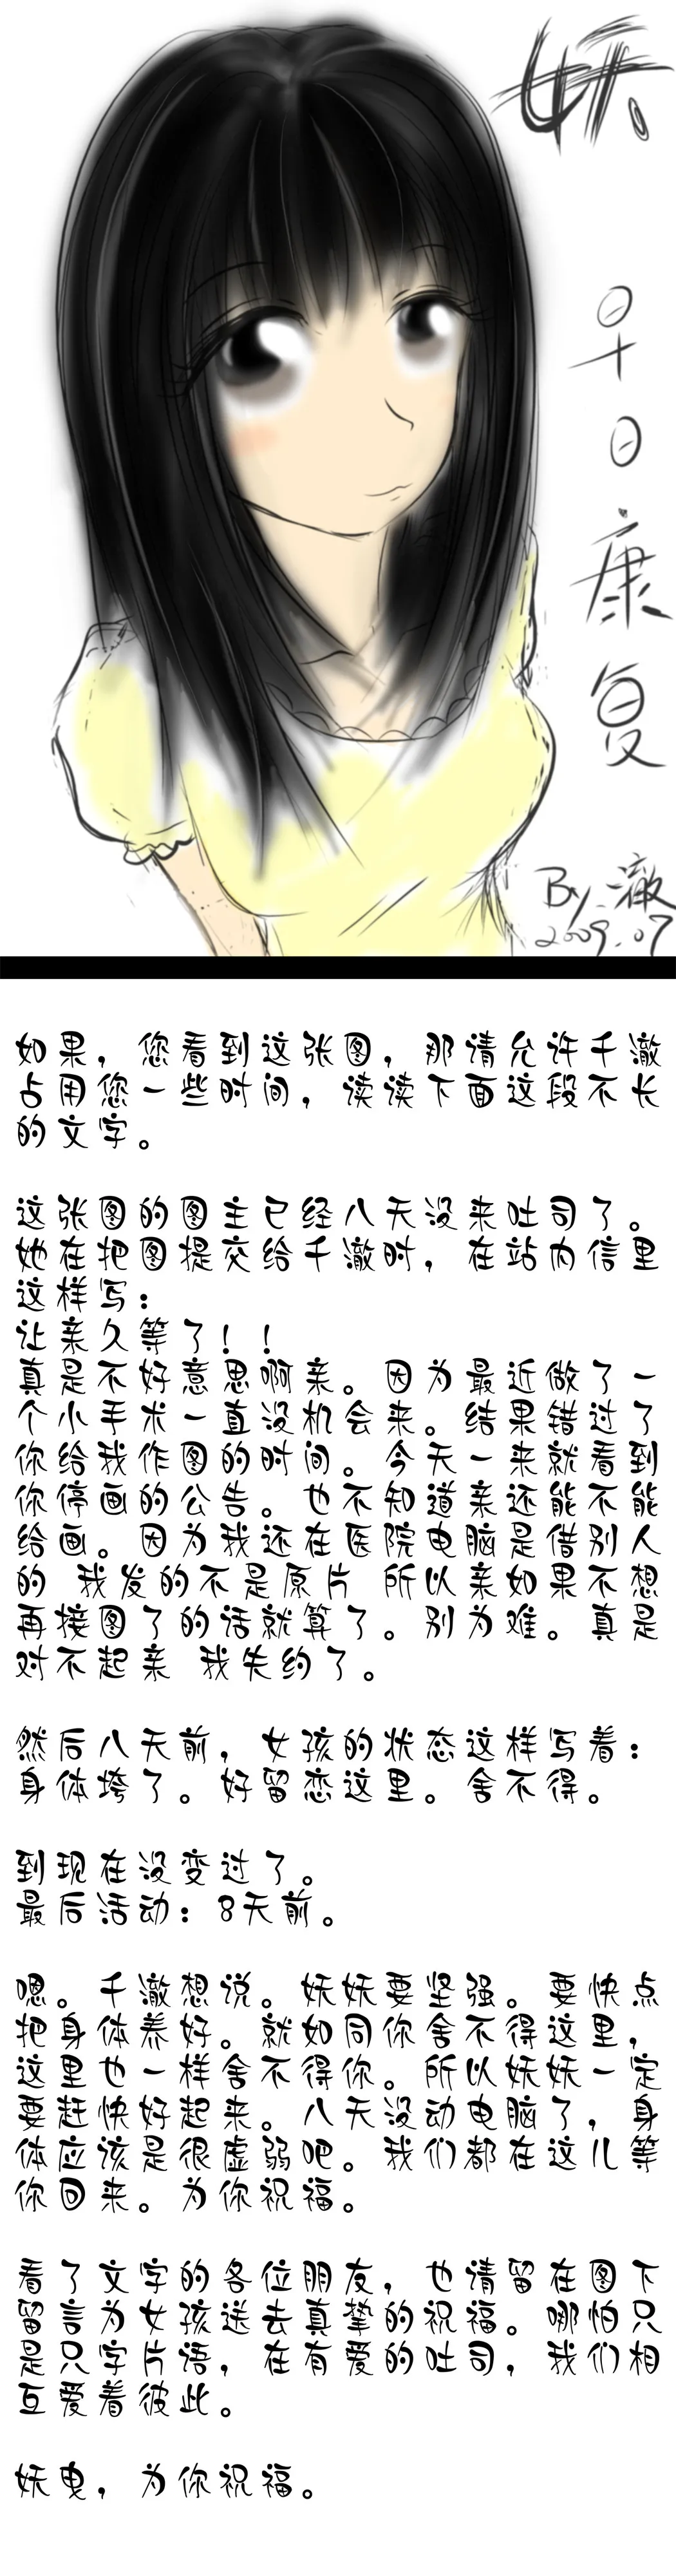 妖。
早日康复
By.澈
2009.07
如果，您看到这张图，那请允许千澈
占用您一些时间，读读下面这段不长
的文字。
这张图的图主已经八天没来吐司了。
她在把图提交给千澈时，在站内信里
这样写：
让亲久等了！！
真是不好意思啊亲。因为最近做了一
个小手术一直没机会来。结果错过了
你给我作图的时间。今天一来就看到
你停画的公告。也不知道亲还能不能
给画。因为我还在医院电脑是借别人
的 我发的不是原片 所以亲如果不想
再接图了的话就算了。别为难。真是
对不起亲 我失约了。
然后八天前，女孩的状态这样写着：
身体垮了。好留恋这里。舍不得。
到现在没变过了。
最后活动：8天前。
嗯。千澈想说。妖妖要坚强。要快点
把身体养好。就如同你舍不得这里，
这里也一样舍不得你。所以妖妖一定
要赶快好起来。八天没动电脑了，身
体应该是很虚弱吧。我们都在这儿等
你回来。为你祝福。
看了文字的各位朋友，也请留在图下
留言为女孩送去真挚的祝福。哪怕只
是只字片语，在有爱的吐司，我们相
互爱着彼此。
妖曳，为你祝福。